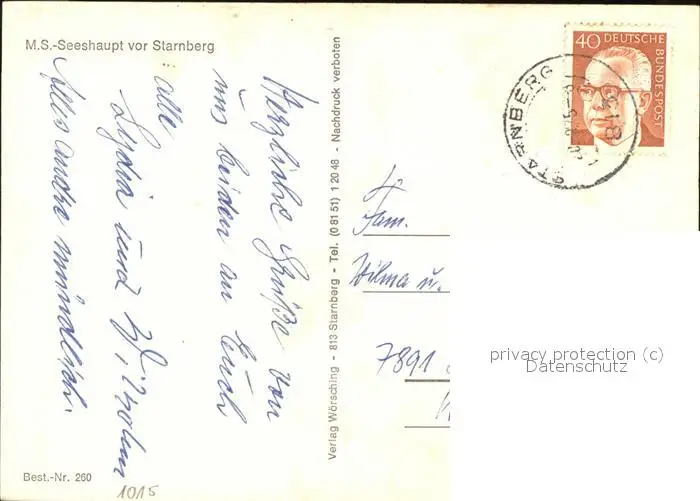 M.S.-Seeshaupt vor Starnberg
Herzliche Grüße von
uns beiden an Euch
alle
Lydia und
Alles andre mündlich.
Best.-Nr. 260
1015
Verlag Wörsching - 813 Starnberg - Tel. (0 81 51) 1 20 48 - Nachdruck verboten
40 DEUTSCHE BUNDESPOST
STARNBERG
813
Fam.
Wilma u.
7891
privacy protection (c)
Datenschutz